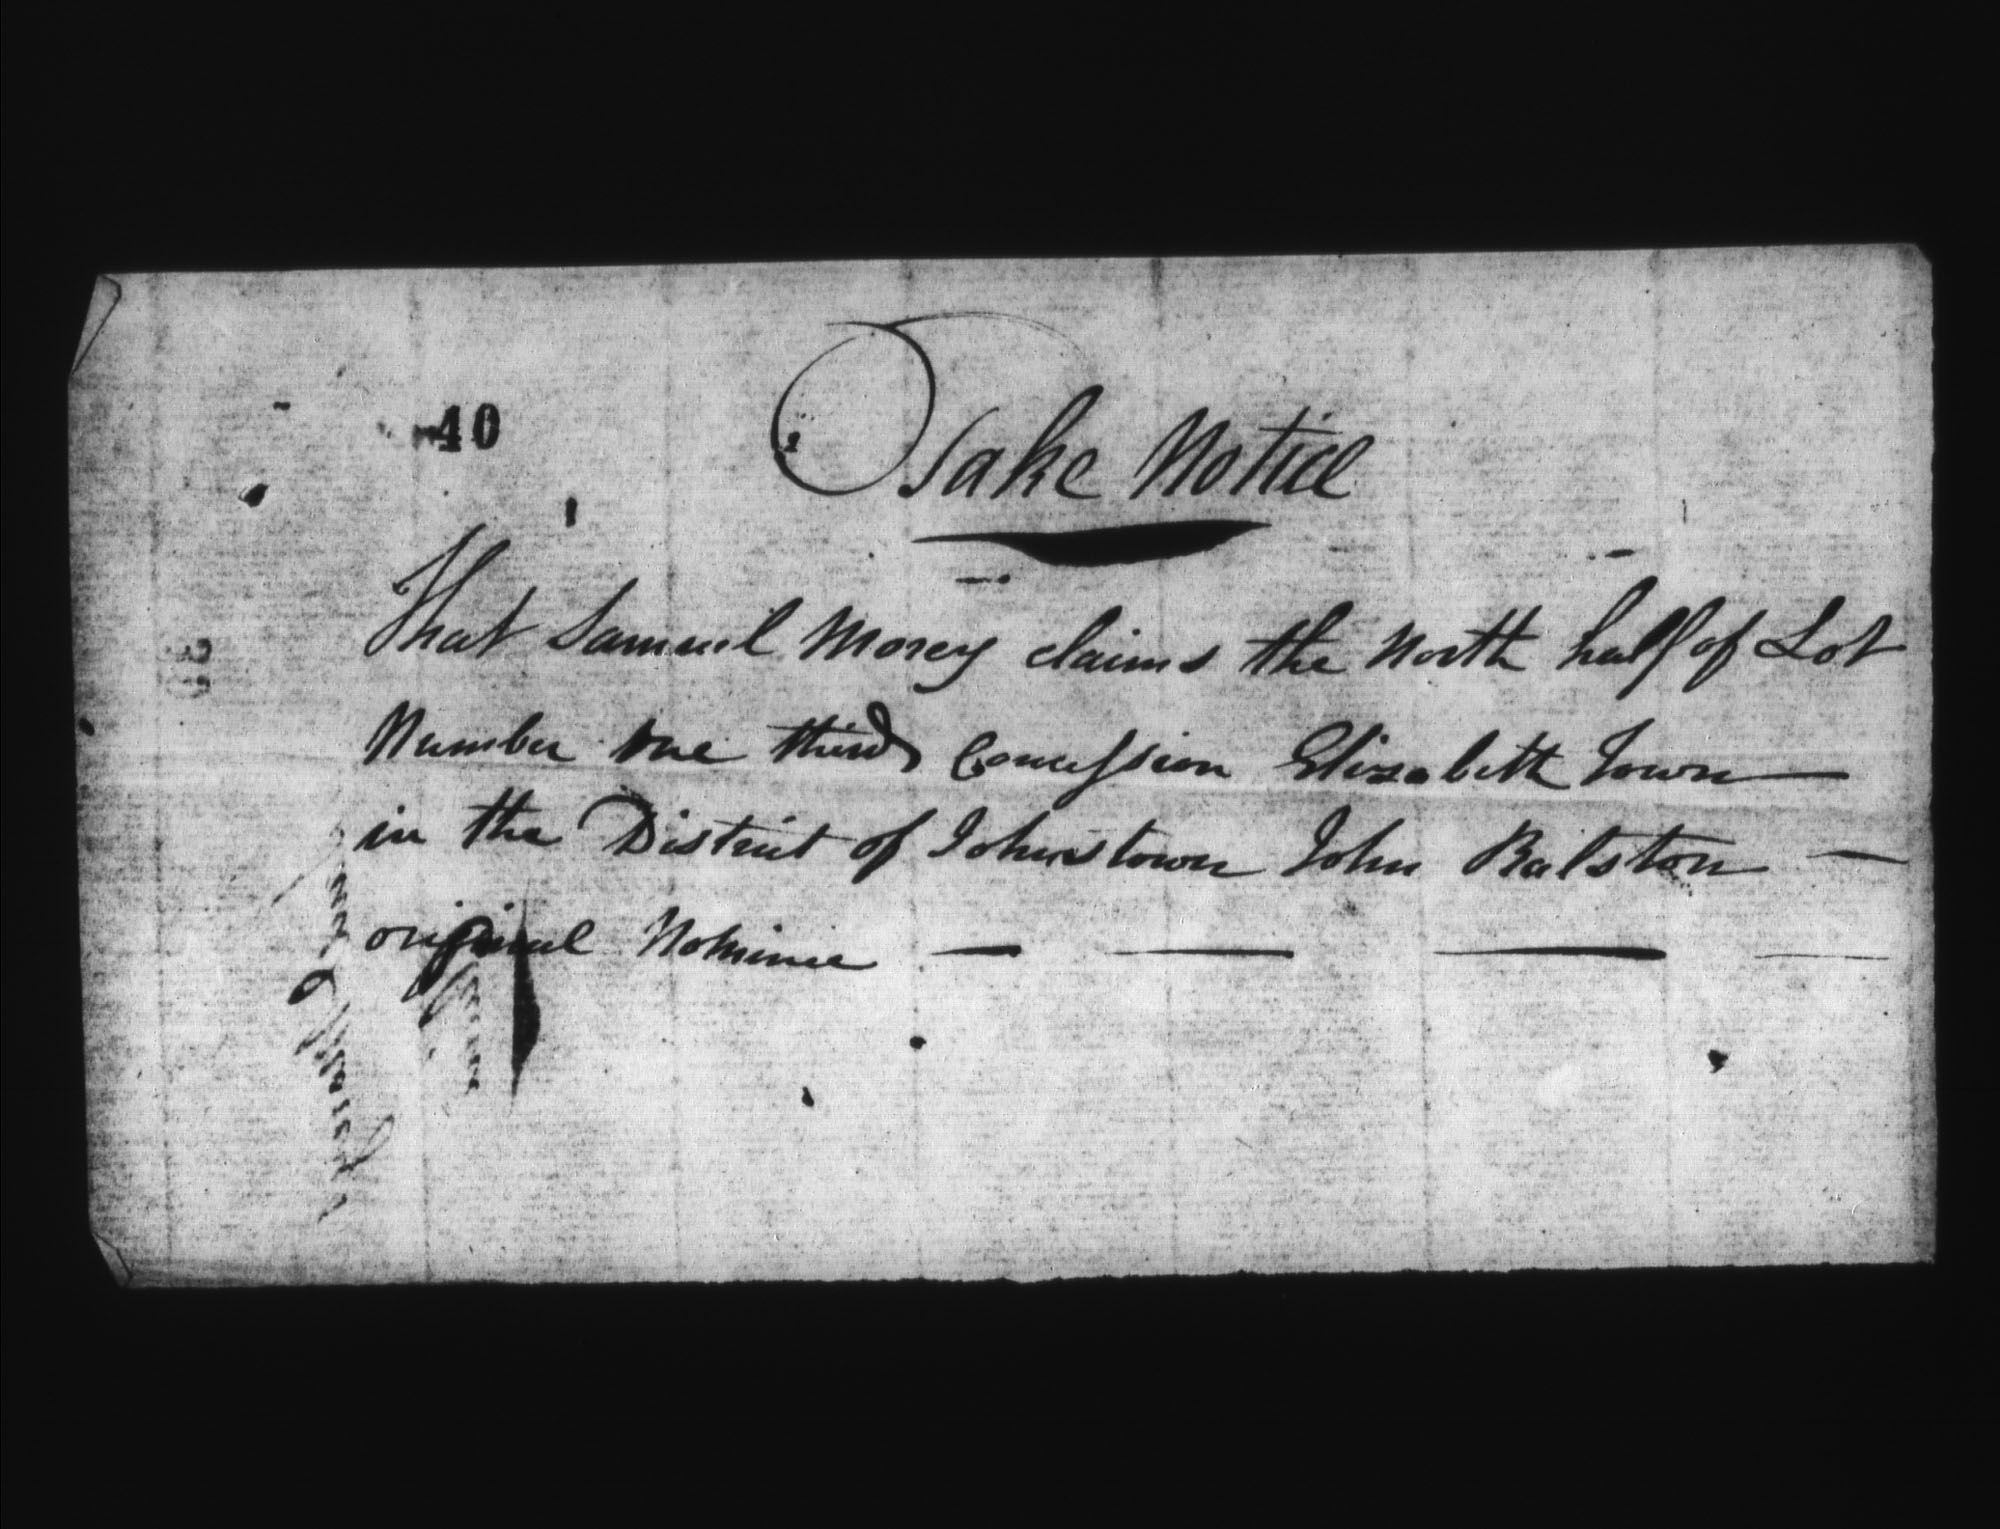 40
Take Notice
That Samuel Morey claims the North half of Lot
Number one third Concession Elizabeth Town
in the District of Johnstown John Ralston
original Nominee